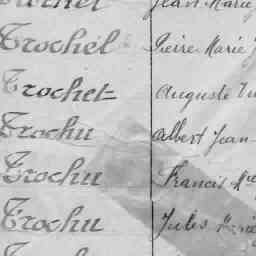 Trochel Jean Marie
Trochel Pierre Marie
Trochet Auguste
Trochu Albert Jean
Trochu Francis
Trochu Jules Marie